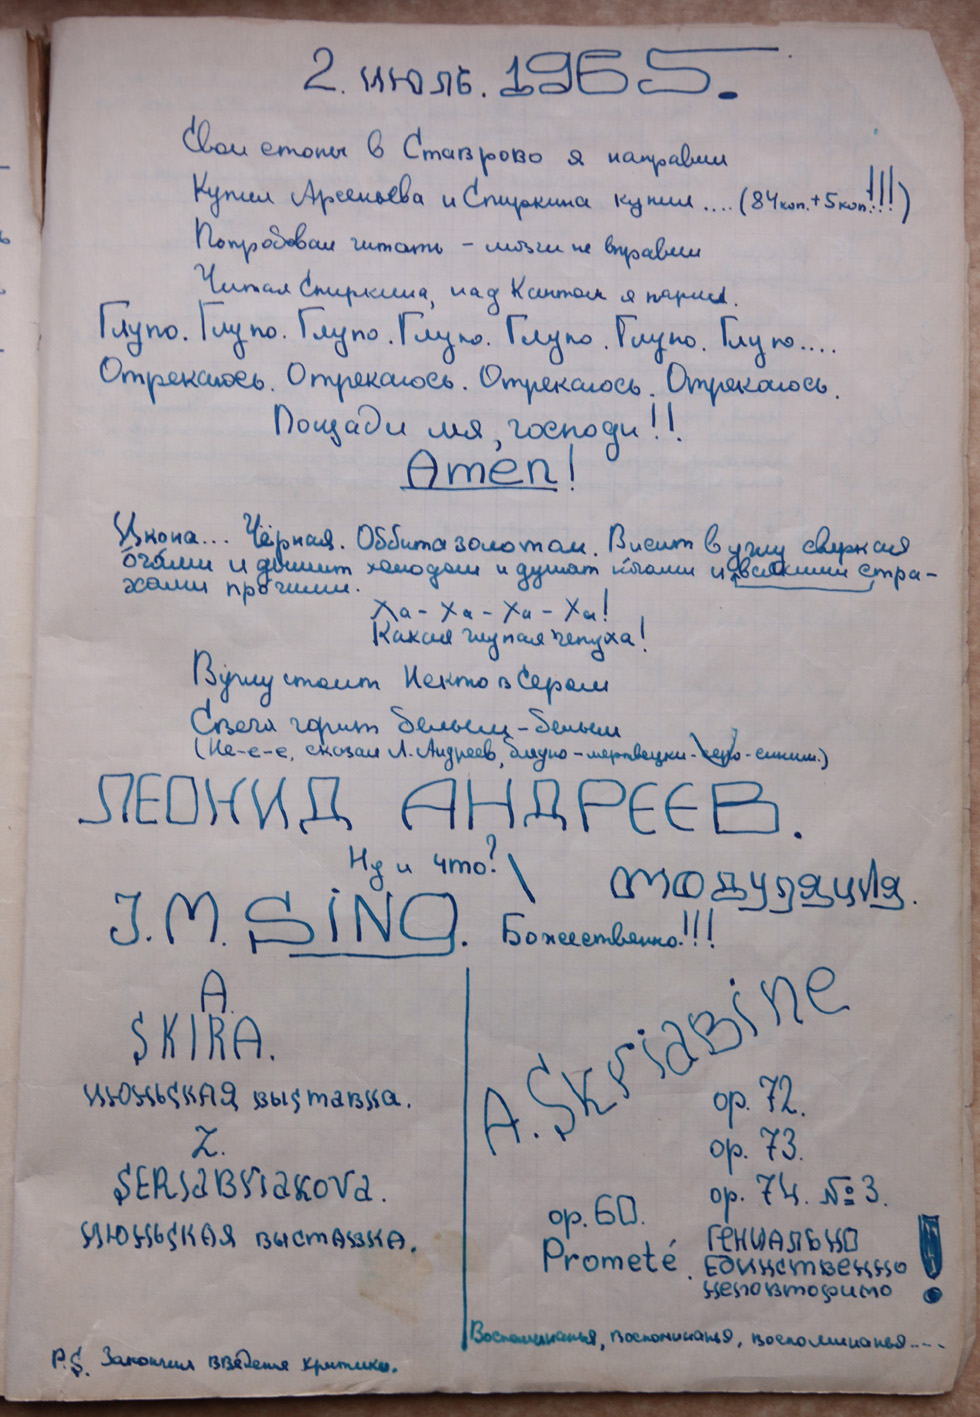 2. июль. 1965.
Свои стопы в Ставрово я направил
Купил Арсеньева и Спиркина купил .... (84 коп. + 5 коп.!!!)
Попробовал читать – мозги не вправил
Читал Спиркина, над Кантом я парил.
Глупо. Глупо. Глупо. Глупо. Глупо. Глупо. Глупо....
Отрекаюсь. Отрекаюсь. Отрекаюсь. Отрекаюсь.
Пощади мя, господи!!
Amen!
Икона... Чёрная. Оббита золотом. Висит в углу сверкая
очами и дышит холодом и душат и всякими стра-
хами прочими.
Ха - Ха - Ха - Ха!
Какая глупая чепуха!
В углу стоит Некто в Сером
Свеча горит белым-белым
(Не-е-е, сказал Л. Андреев, бледно-мертвецки-серо-синим.)
ЛЕОНИД АНДРЕЕВ.
Ну и что?
модуляция.
J. M. SiNG. Божественно!!!
A.
SKIRA.
июньская выставка.
Z.
SERIABRIAKOVA.
июньская выставка.
A. SkriaBine
op. 72.
op. 73.
op. 74. № 3.
op. 60.
Prometé.
гениально
единственно
неповторимо !
Воспоминанья, воспоминанья, воспоминанья....
P.S. Закончил введение критики.